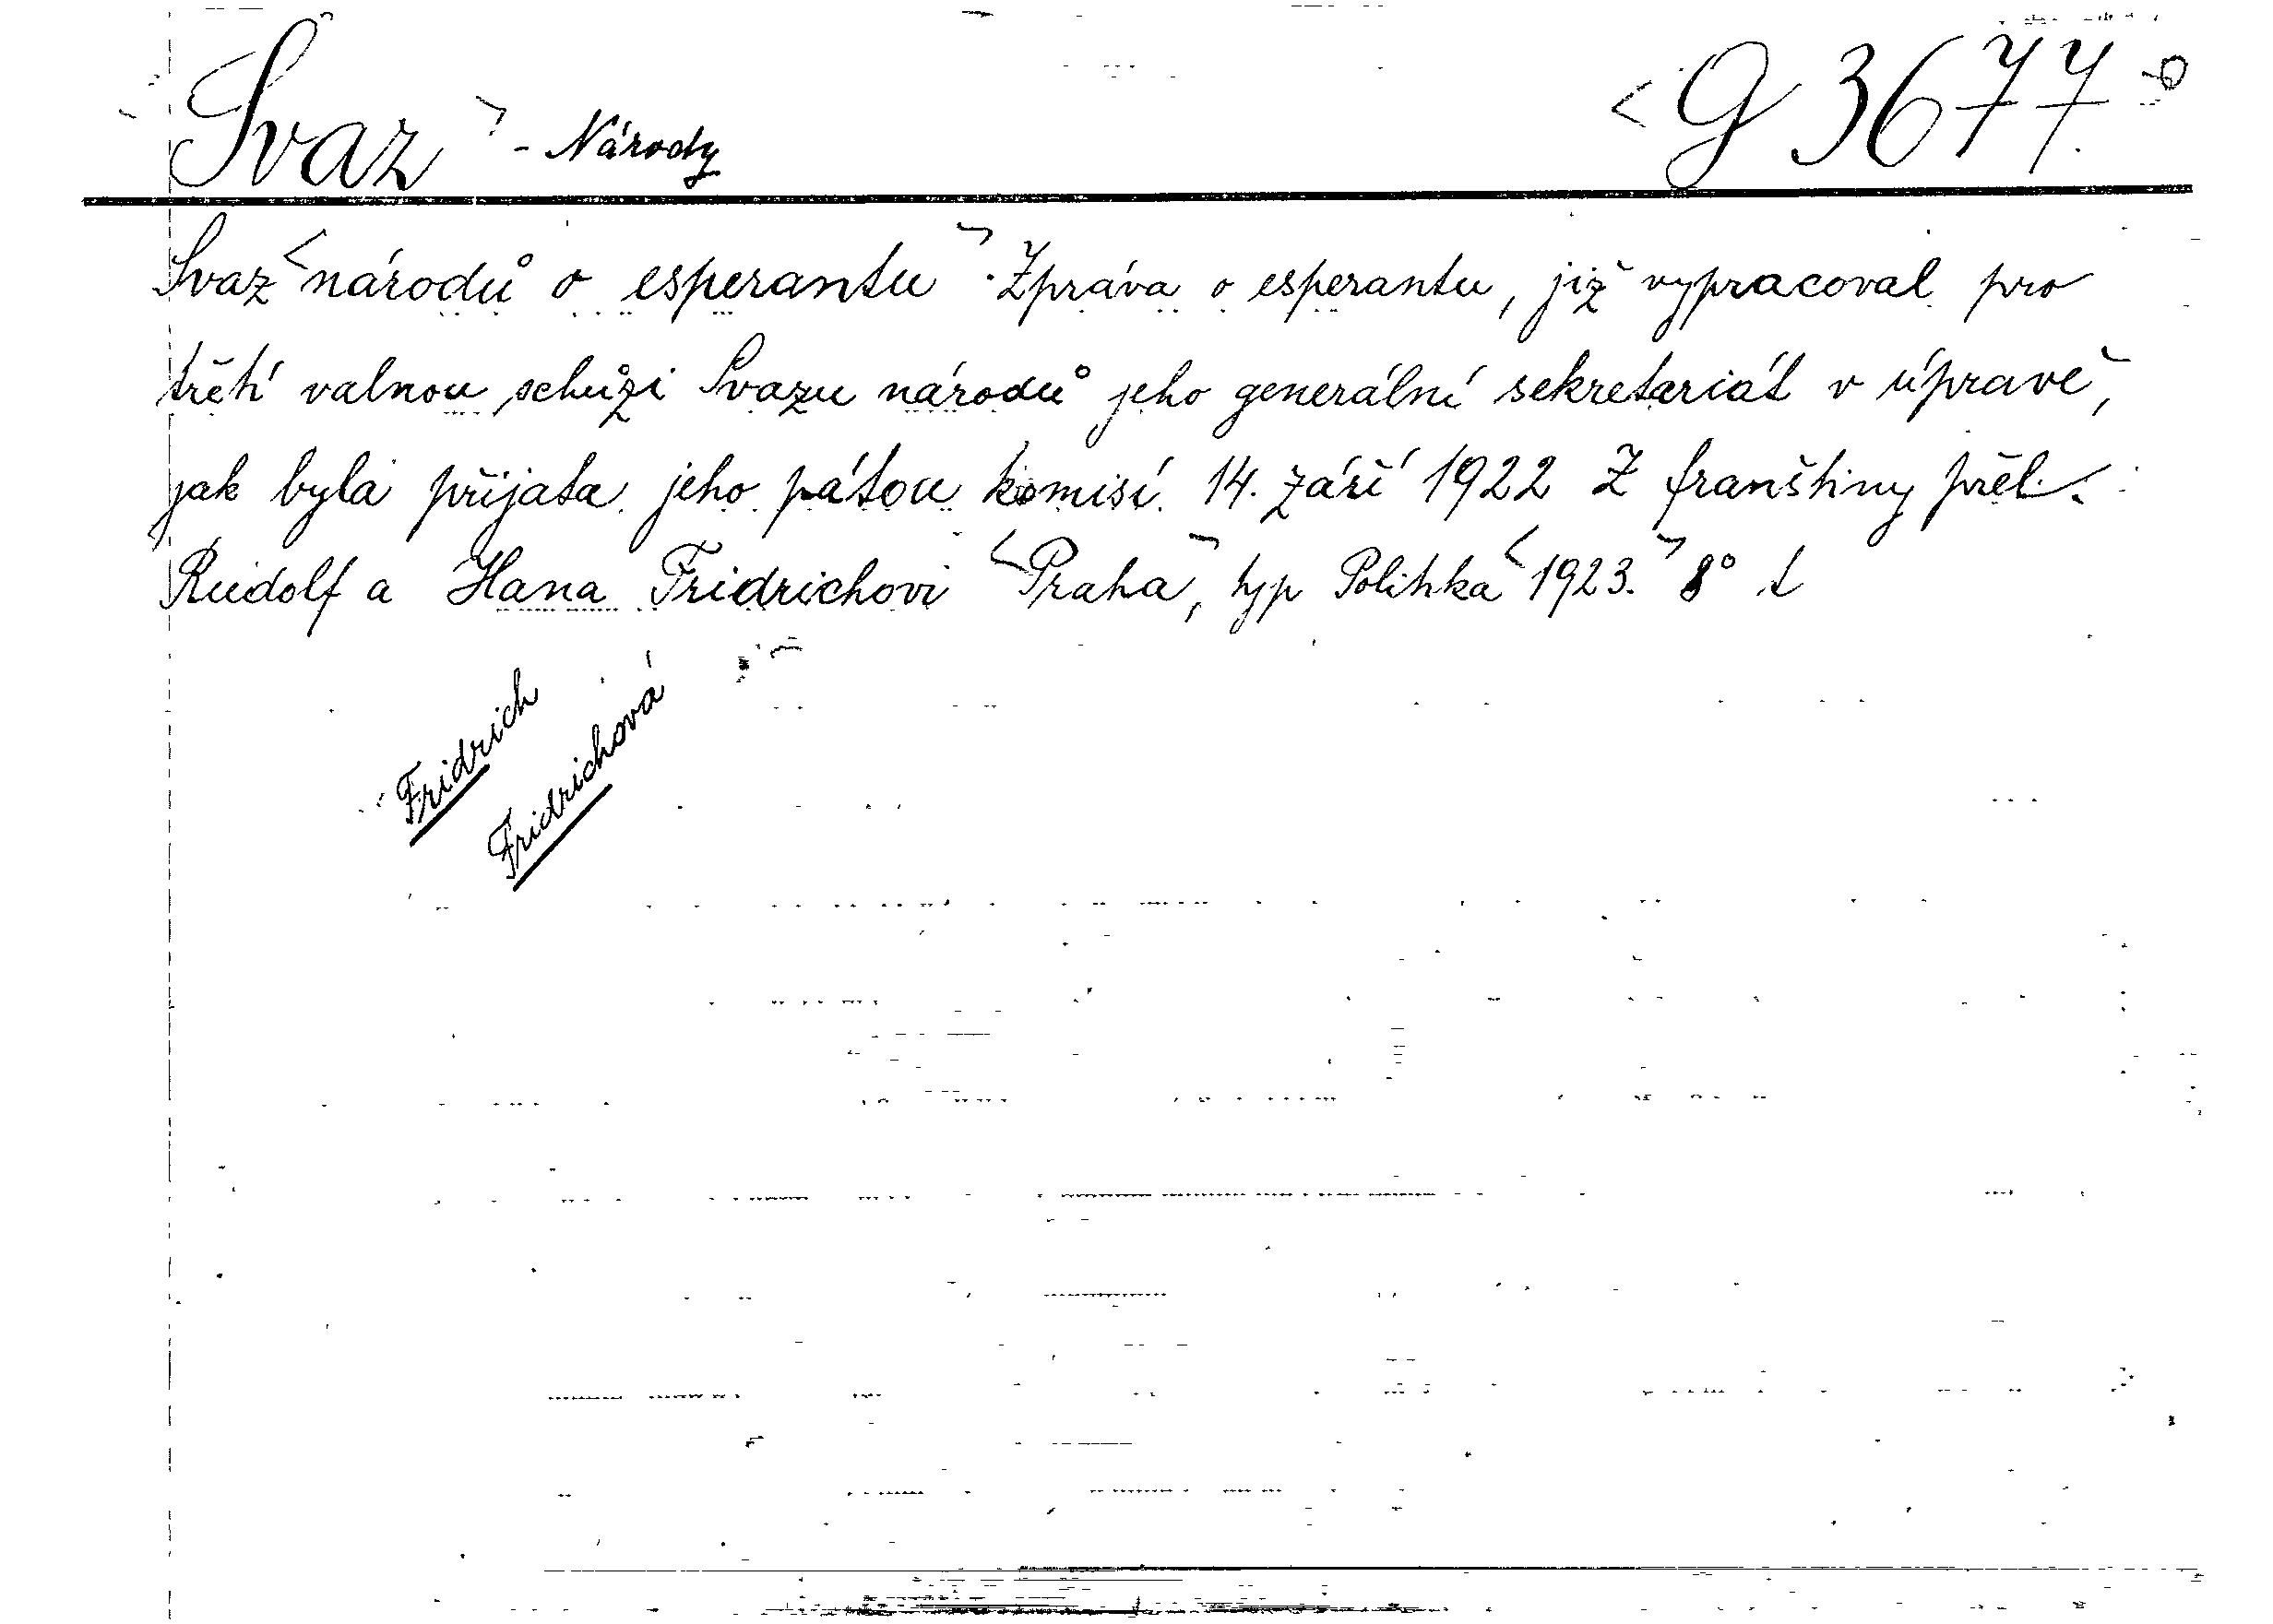 Svaz - Národy G 3677.
Svaz národů o esperantu. Zpráva o esperantu, již vypracoval pro
třetí valnou schůzi Svazu národů jeho generální sekretariát v úpravě,
jak byla přijata jeho pátou komisí 14. září 1922 Z franštiny přel.
Rudolf a Hana Fridrichovi Praha, typ Politika 1923. 8°
Fridrich
Fridrichová